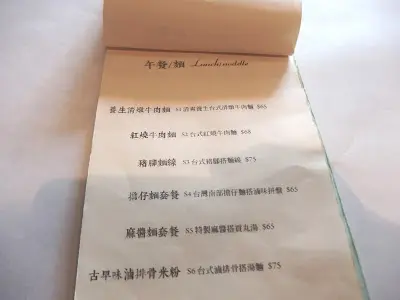 午餐/麵 Lunch noddle
養生清燉牛肉麵 S1 清蒸養生台式清燉牛肉麵 $65
紅燒牛肉麵 S2 台式紅燒牛肉麵 $68
豬腳麵線 S3 台式豬腳搭麵線 $75
擔仔麵套餐 S4 台灣南部擔仔麵搭滷味拼盤 $65
麻醬麵套餐 S5 特製麻醬搭貢丸湯 $65
古早味滷排骨米粉 S6 台式滷排骨搭湯麵 $75